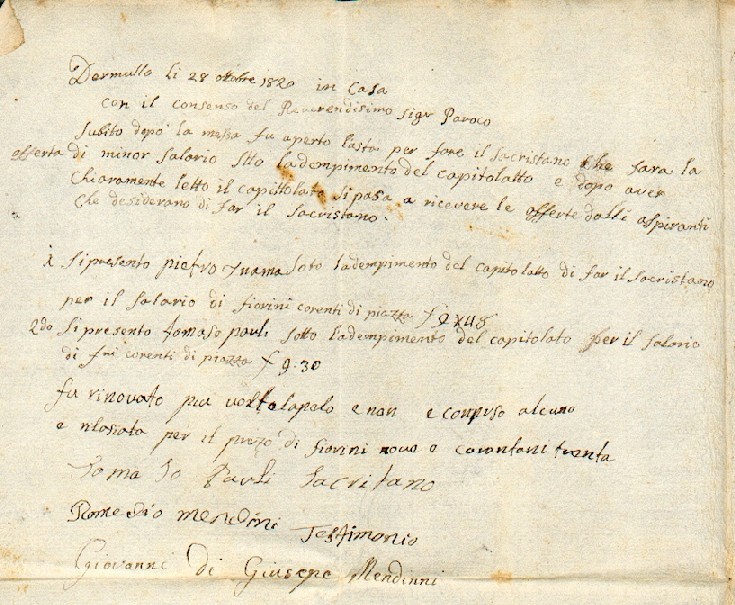 Dermullo li 28 ottobre 1820 in Casa
con il consenso del Reverendisimo Sigr Paroco
Subito dopo la messa fu aperto lasta per fare il sacristano che fara la
offerta di minor salario Stto ladempimento del capitolatto e dopo aver
chiaramente letto il capittolato si pasa a ricevere le offerte dalli aspiranti
che desiderano di far il sacristano.
1 Si presento pietro Inama Soto ladempimento del capitolatto di far il sacristano
per il salario di fiorini corenti di piazza
2do Si presento tomaso pauli sotto ladempimento del capitolato per il salario
di fni corenti di piazza f 9.30
fu rinovato piu volte lapelo e non e conpurso alcuno
e rilassata per il prezo di fiorini nove e carantani trenta
Toma So Pauli Sacritano
Romedio mendini Testimonio
Giovanni di Giusepe Mendinni